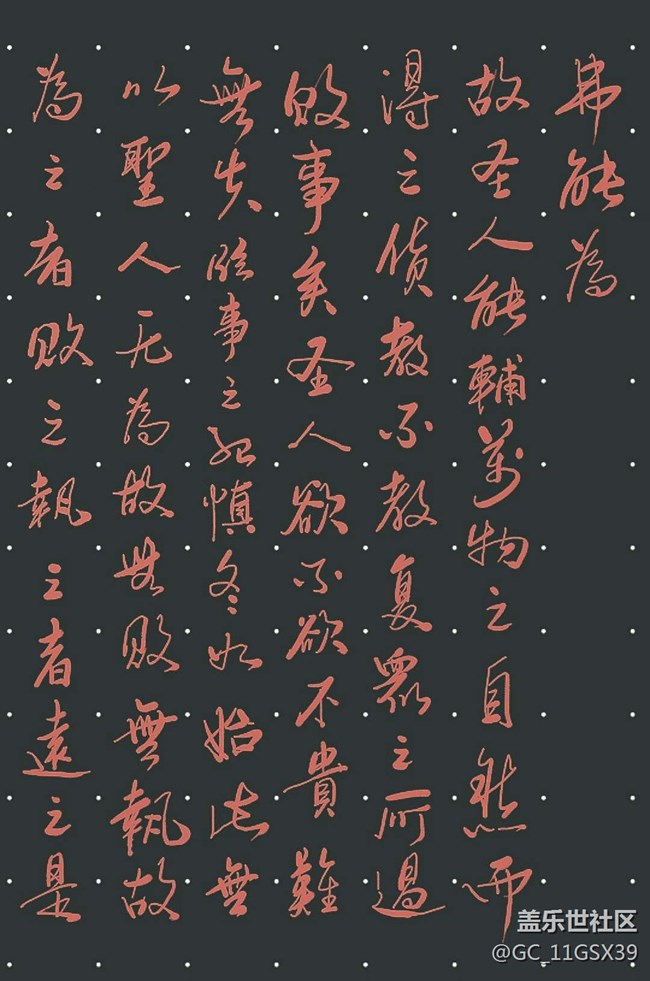 為之者败之執之者遠之是
以聖人无為故無败無執故
無失临事之紀慎冬如始此無
败事矣圣人欲不欲不貴難
得之货教不教复眾之所過
故圣人能輔萬物之自然而
弗能為
盖乐世社区
@GC_11GSX39